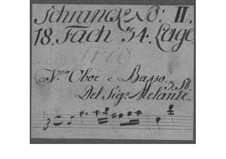 Schranck No: II.
18. Fach 34. Lage
Trio
Oboe e Basso.
Del Sigr. Melante.